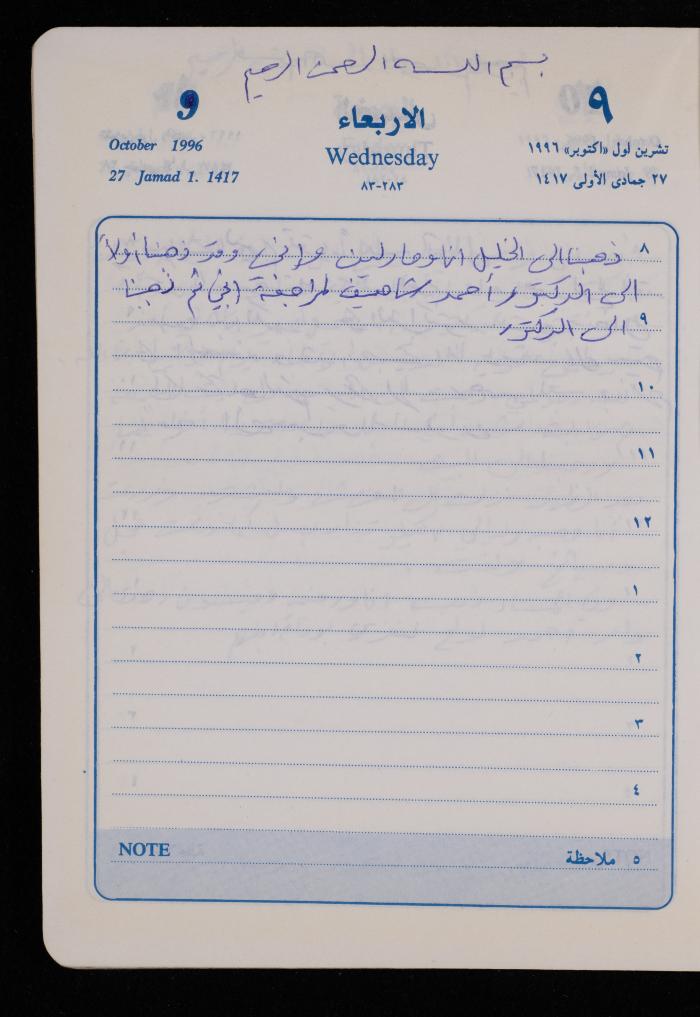 بسم اللــه الرحمن الرحيم
9 ٩
الاربعاء
October 1996 تشرين لول «اكتوبر» ١٩٩٦
Wednesday
27 Jamad 1. 1417 ٢٧ جمادى الأولى ١٤١٧
٢٨٣-٨٣
٨ ذهبنا الى الخليل انا ومارلين وقد ذهبنا أولاً
الى الدكتور أحمد لمراجعة ثم ذهبنا
٩ الى الدكتور
١٠
١١
١٢
١
٢
٣
٤
NOTE ٥ ملاحظة